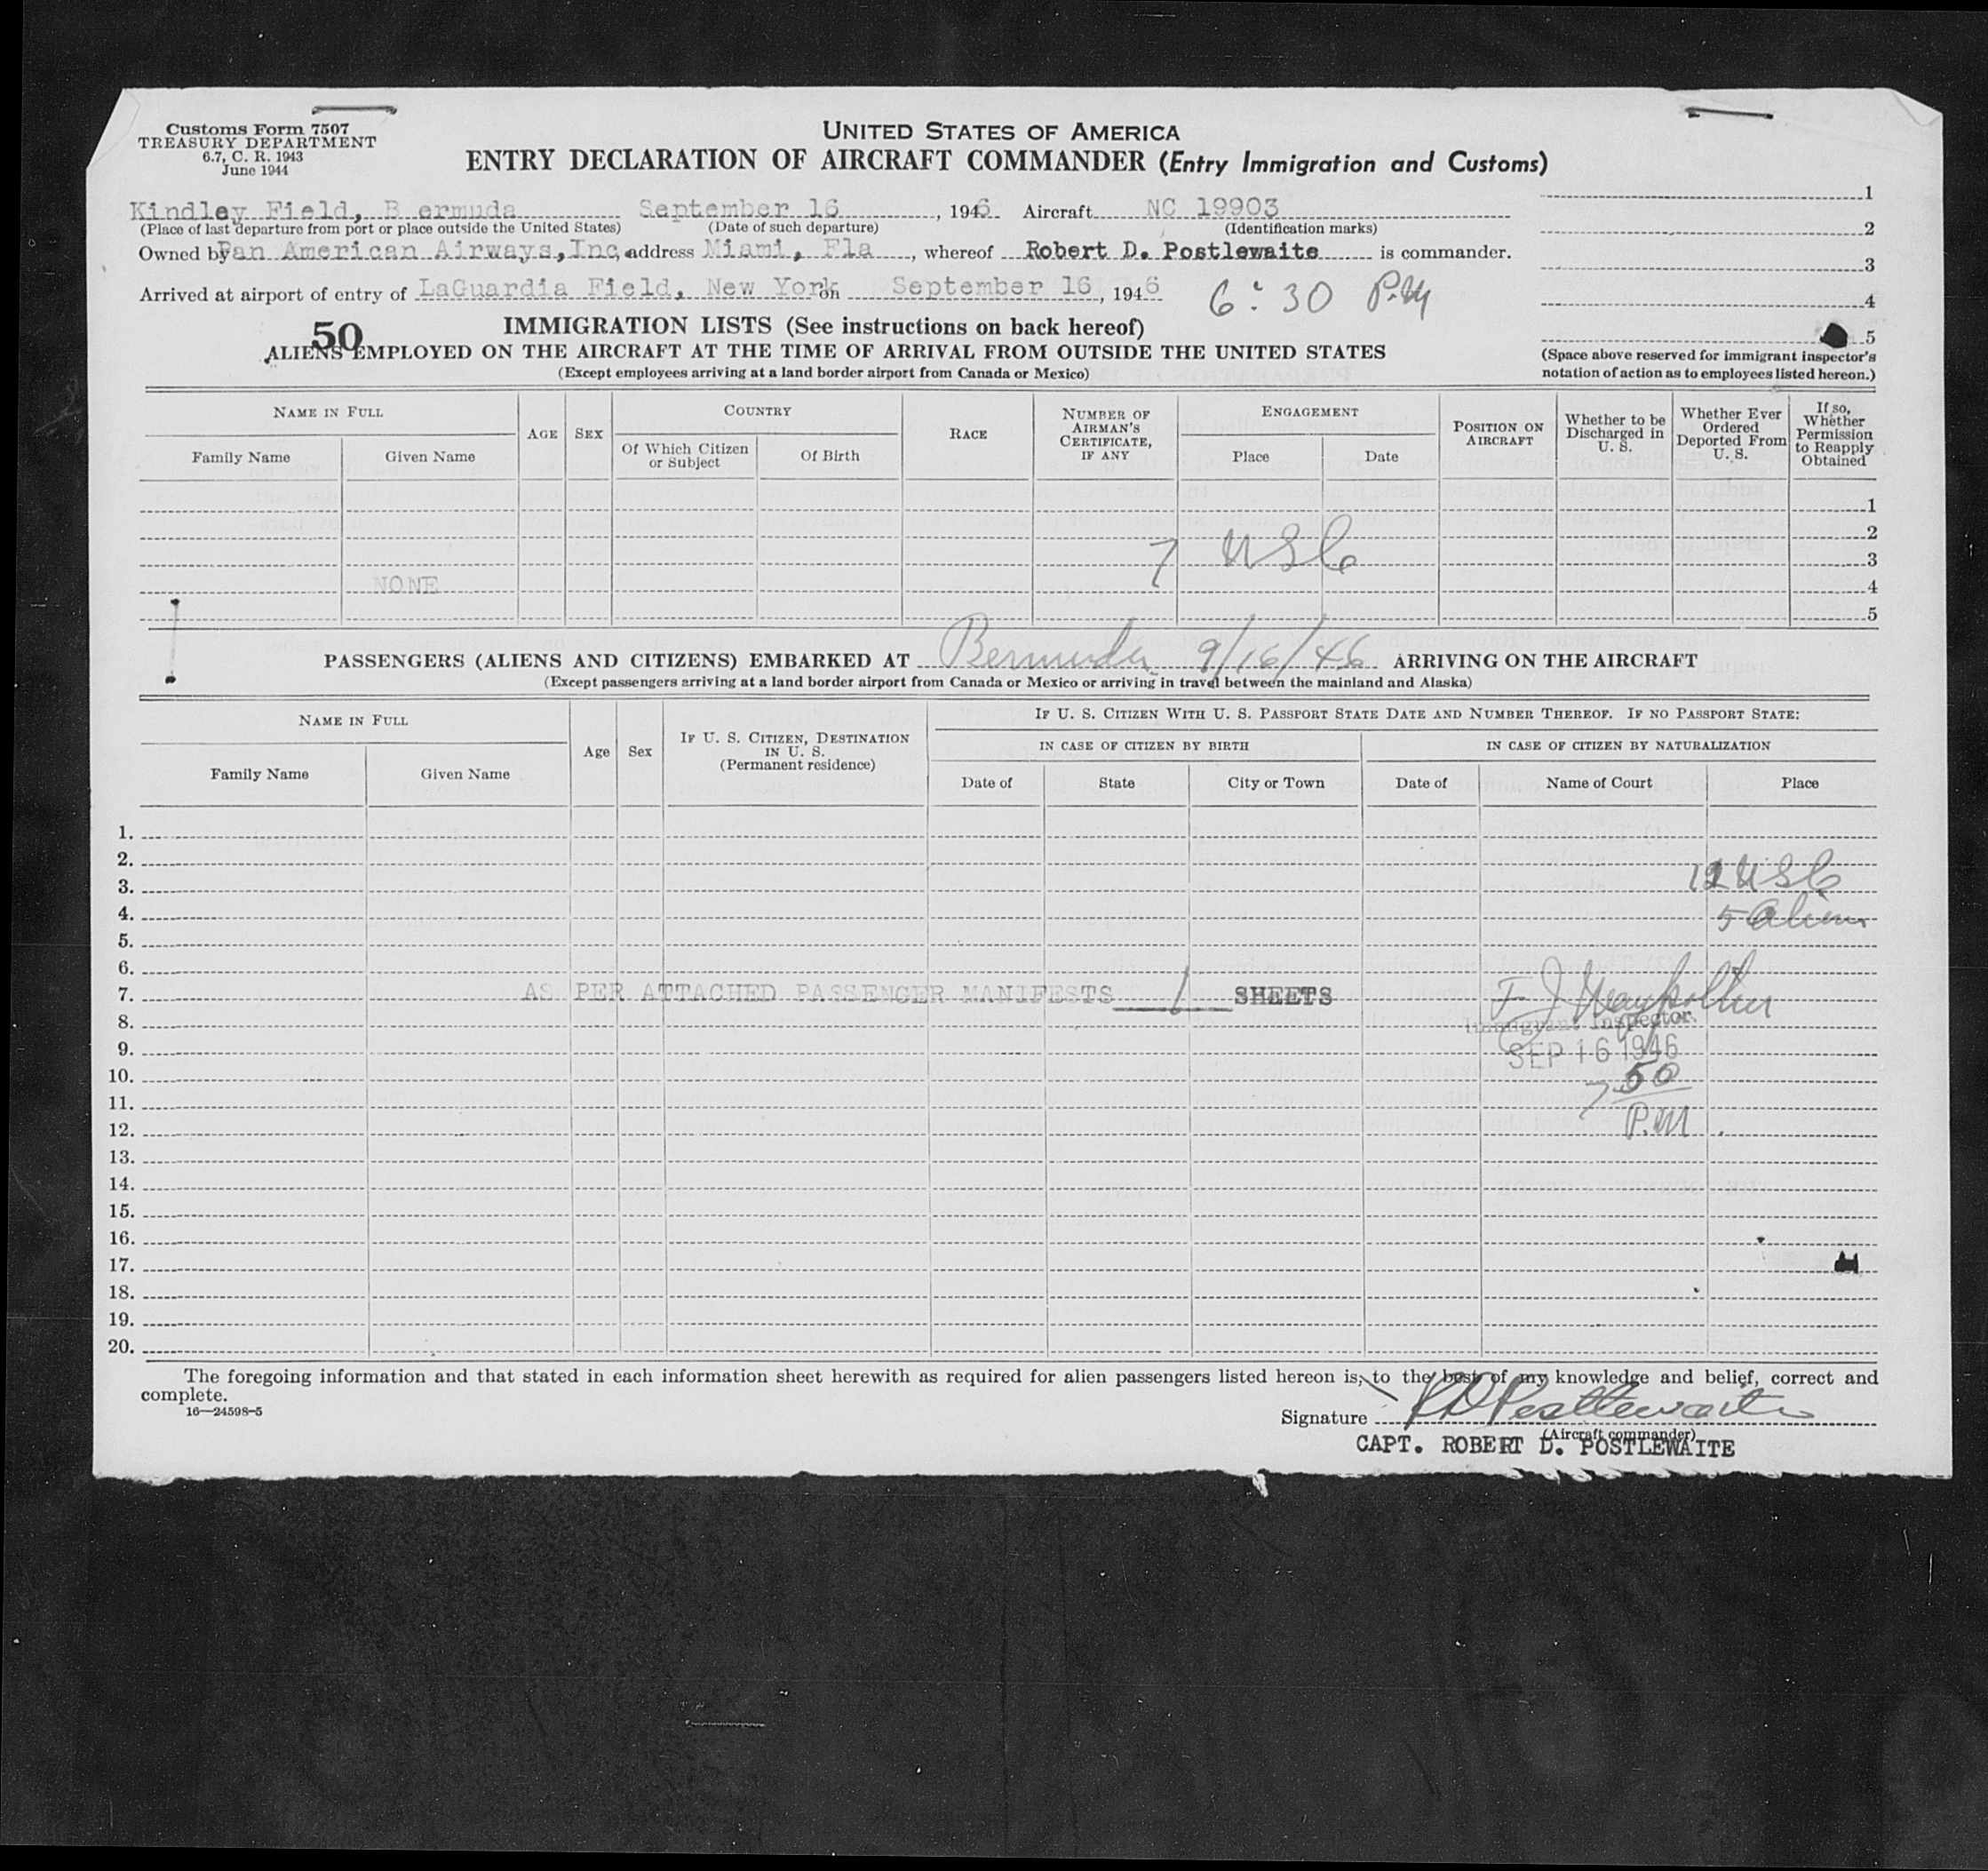 Customs Form 7507
TREASURY DEPARTMENT
6.7, C. R. 1943
June 1944
UNITED STATES OF AMERICA
ENTRY DECLARATION OF AIRCRAFT COMMANDER (Entry Immigration and Customs)
Kindley Field, B ermuda September 16, 1946 Aircraft NC 19903
(Place of last departure from port or place outside the United States) (Date of such departure) (Identification marks)
Owned by Pan American Airways, Inc, address Miami, Fla, whereof Robert D. Postlewaite is commander.
Arrived at airport of entry of LaGuardia Field, New York on September 16, 1946 6:30 P.M
1
2
3
4
5
(Space above reserved for immigrant inspector's
notation of action as to employees listed hereon.)
50
IMMIGRATION LISTS (See instructions on back hereof)
ALIENS EMPLOYED ON THE AIRCRAFT AT THE TIME OF ARRIVAL FROM OUTSIDE THE UNITED STATES
(Except employees arriving at a land border airport from Canada or Mexico)
NAME IN FULL
Family Name Given Name
AGE SEX
COUNTRY
Of Which Citizen or Subject
Of Birth
RACE
NUMBER OF AIRMAN'S CERTIFICATE, IF ANY
ENGAGEMENT
Place Date
POSITION ON AIRCRAFT
Whether to be Discharged in U. S.
Whether Ever Ordered Deported From U. S.
If so, Whether Permission to Reapply Obtained
1
2
7 USC 3
NONE 4
5
PASSENGERS (ALIENS AND CITIZENS) EMBARKED AT Bermuda 9/16/46 ARRIVING ON THE AIRCRAFT
(Except passengers arriving at a land border airport from Canada or Mexico or arriving in travel between the mainland and Alaska)
NAME IN FULL
Family Name Given Name
Age Sex
IF U. S. CITIZEN, DESTINATION IN U. S.
(Permanent residence)
IF U. S. CITIZEN WITH U. S. PASSPORT STATE DATE AND NUMBER THEREOF. IF NO PASSPORT STATE:
IN CASE OF CITIZEN BY BIRTH IN CASE OF CITIZEN BY NATURALIZATION
Date of State City or Town Date of Name of Court Place
1.
2.
3. USC
4. 5 Aliens
5.
6.
7. AS PER ATTACHED PASSENGER MANIFESTS 1 SHEETS
8. Immigrant Inspector
9. SEP 16 1946
10. 7 50
11.
12. P.M.
13.
14.
15.
16.
17.
18.
19.
20.
The foregoing information and that stated in each information sheet herewith as required for alien passengers listed hereon is, to the best of my knowledge and belief, correct and
complete.
16—24598-5
Signature RD Postlewaite
(Aircraft commander)
CAPT. ROBERT D. POSTLEWAITE